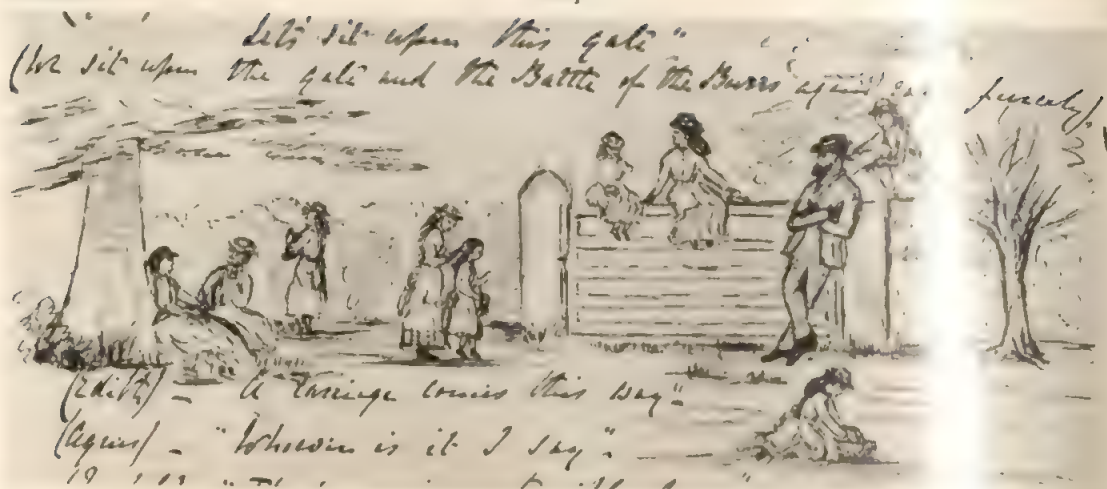 Let's sit upon this gate"
(We sit upon the gate and the Battle of the Burrs again
(Edith) – "A Carriage comes this way".
(Agnes) – "Wherein is it I say".